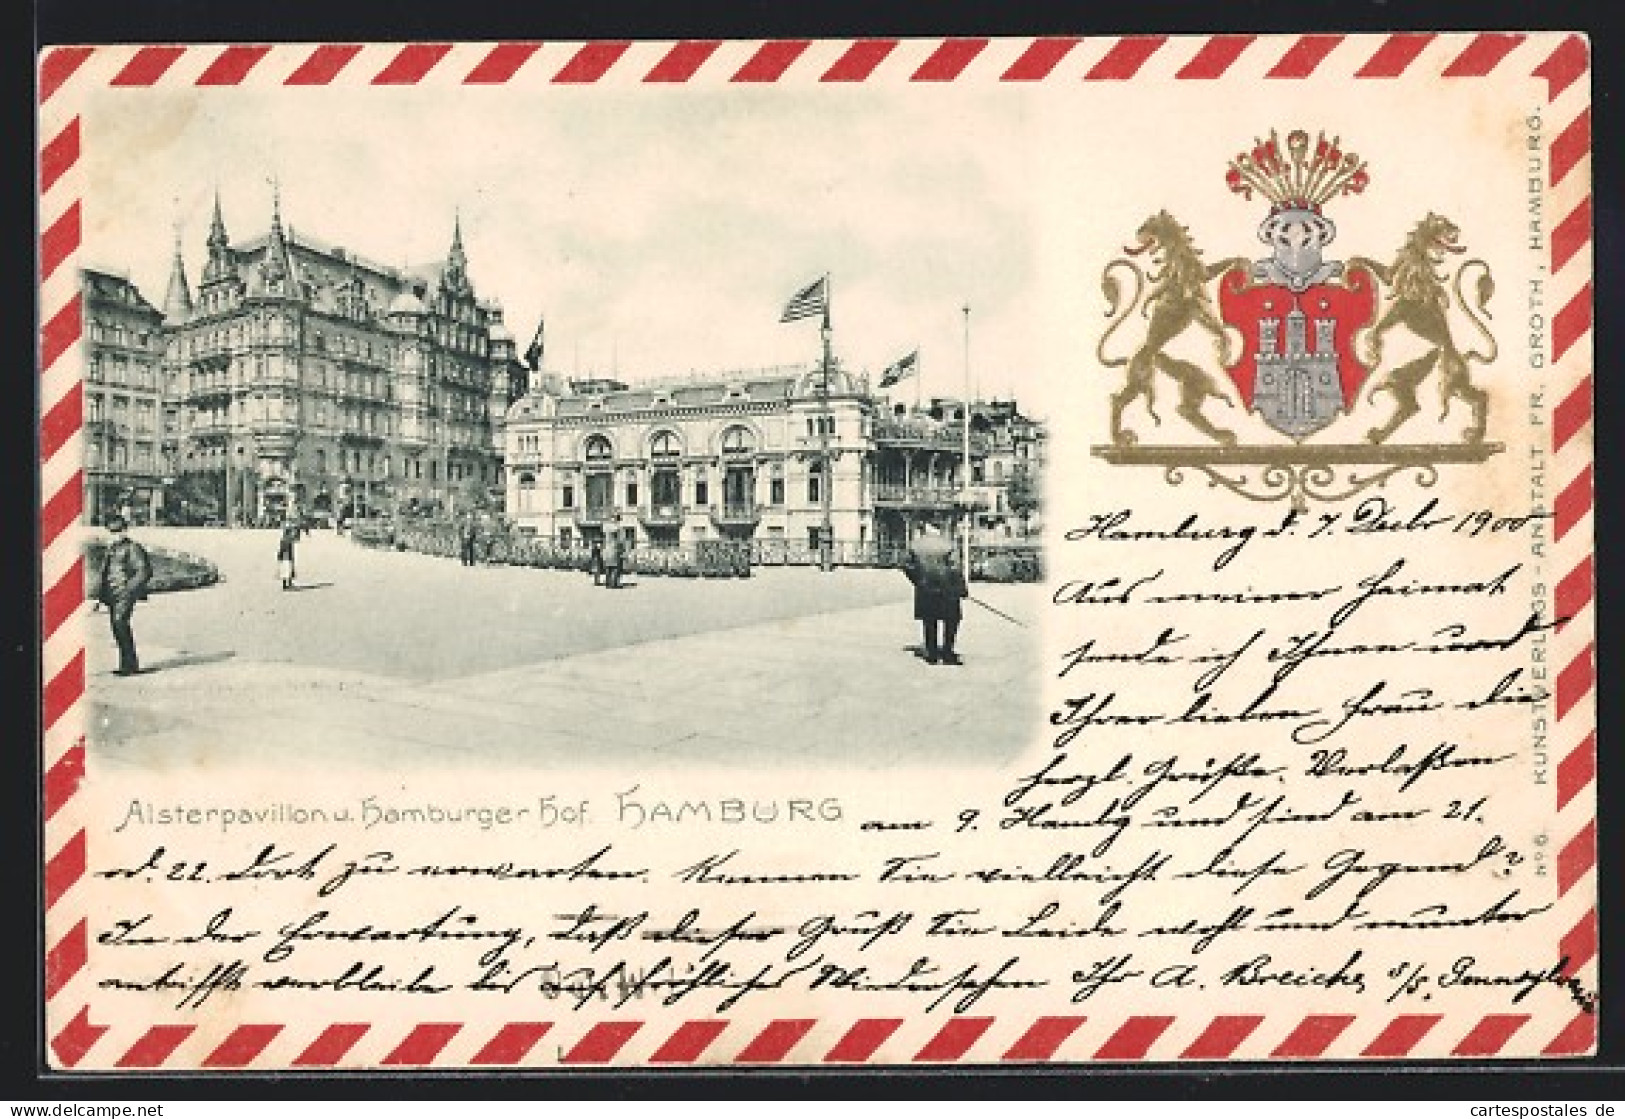 Hamburg d. 7. Decbr 1900
Aus meiner Heimat
sende ich Ihnen und
Ihrer lieben Frau die
herzl. Grüße. Verlaßen
Alsterpavillon u. Hamburger Hof. HAMBURG
am 9. Hambg und sind am 21.
od. 22. dort zu erwarten. Kennen Sie vielleicht diese Gegend?
In der Erwartung, daß dieser Gruß Sie Beide wohl und munter
antrifft verbleibe bis auf fröhliches Wiedersehen Ihr A. Breiche, S/S.
No 6. KUNSTVERLAGS-ANSTALT FR. GROTH, HAMBURG.
cartespostales de